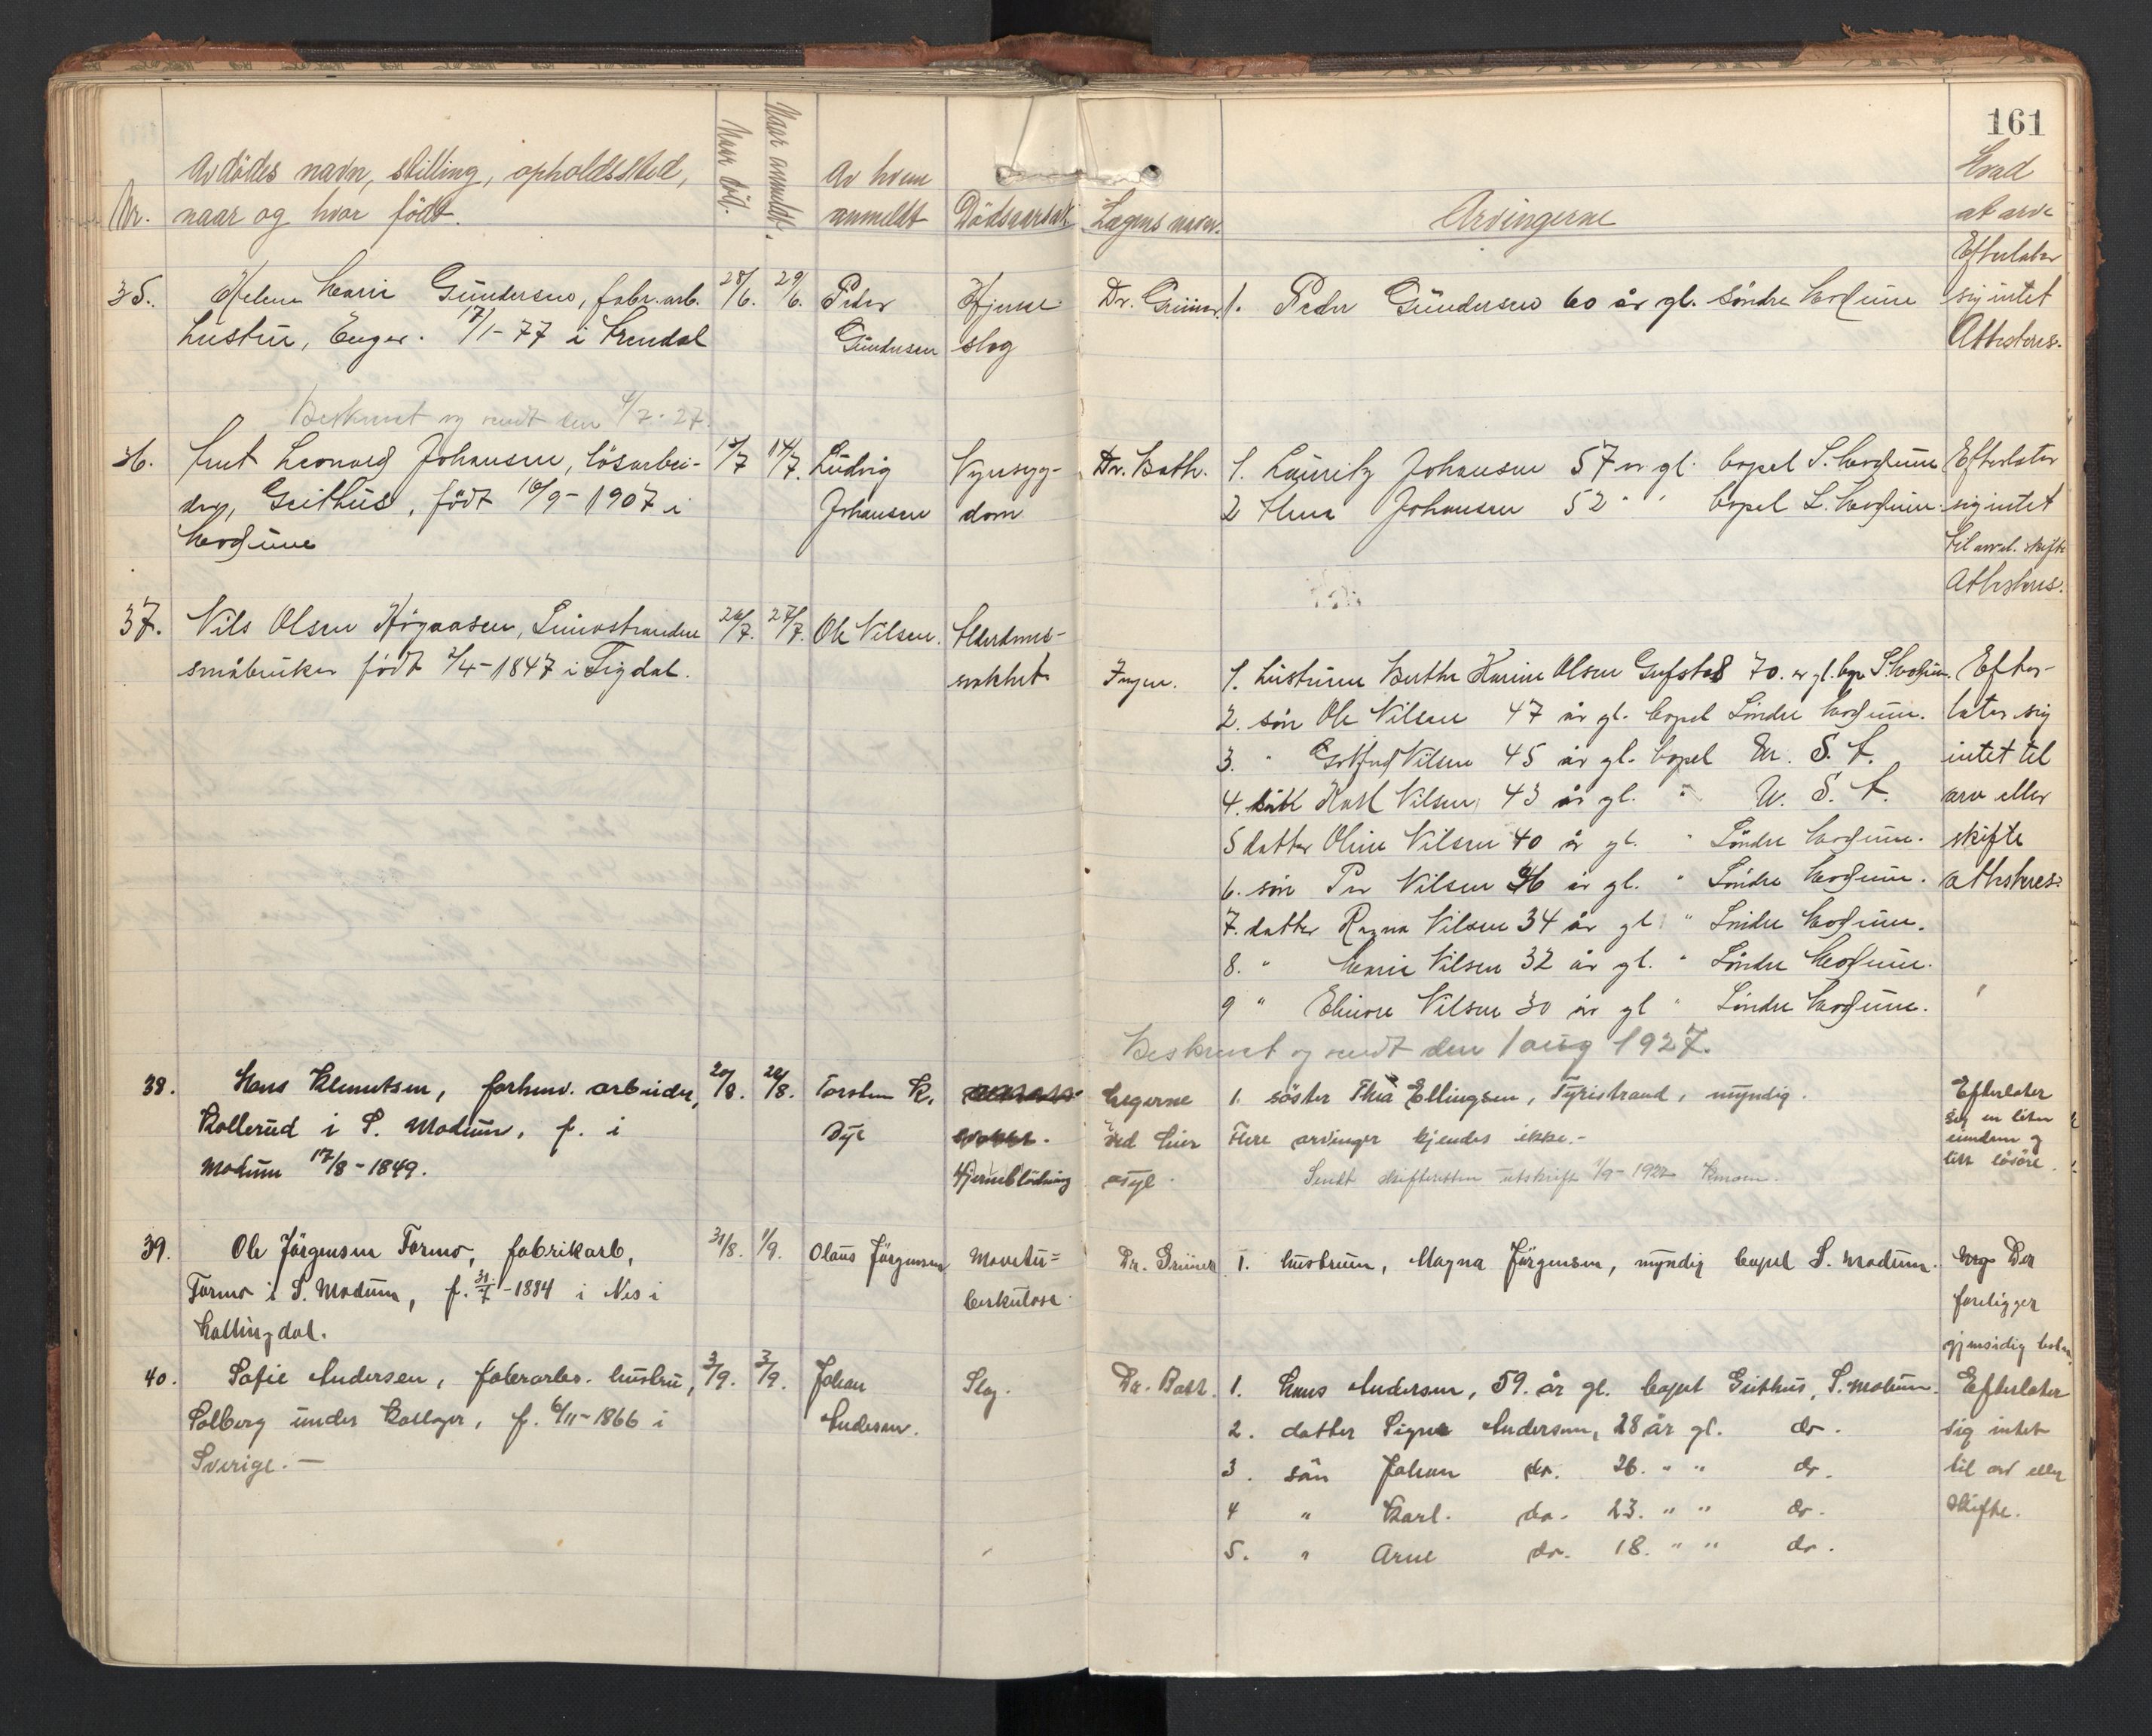 161
Nr.
Avdødes navn, stilling, opholdssted,
naar og hvor født.
Naar død.
Naar anmeldt.
Av hvem
anmeldt
Dødsaarsak.
Lægens navn.
Arvingerne
Hvad
at arve
35. Helene Marie Gundersen, fabr.arb. 28/6. 29/6. Peder Hjerne- Dr. Grüner. 1. Peder Gundersen 60 år gl. Søndre Modum Efterlater
hustru, Enger. 17/1-77 i Grendal Gundersen slag sig intet
Attesteres.
Beskrevet og sendt den 4/7-27.
36. Leonard Johansen, løsarbei- 12/7 14/7. Ludvig Nyresyg- Dr. Bath. 1. Lauritz Johansen 57 år gl. bopel S. Modum Efterlater
der, Geithus, født 16/9-1907 i Johansen dom 2 Johansen 52 " " bopel S. Modum. sig intet
Modum til arv el. skifte
Attesteres.
37. Nils Olsen Høgaasen, Simostranden 26/7. 27/7. Ole Nilsen. Alderdoms-
småbruker født 2/4-1847 i Sigdal. svakhet Ingen. 1. hustruen Berthe Karine Olsen 70. år gl. bop. S. Modum. Efter-
2. søn Ole Nilsen 47 år gl. bopel Søndre Modum. later sig
3. " Nilsen 45 år gl. bopel U. S. A. intet til
4. Karl Nilsen 43 år gl. " U. S. A. arv eller
5 datter Oline Nilsen 40 år gl. " Søndre Modum. skifte
6. søn Per Nilsen 36 år gl. " Søndre Modum. attesteres:
7. datter Ragna Nilsen 34 år gl. " Søndre Modum.
8. " Marie Nilsen 32 år gl. " Søndre Modum.
9 " Elinore Nilsen 30 år gl " Søndre Modum.
Beskrevet og sendt den 1 aug 1927.
38. Hans Klemetsen, forhenv. arbeider, 20/8. 24/8. Torsten K. Legerne 1. søster Thea Ellingsen, Tyristrand, myndig. Efterlater
Kollerud i S. Modum, f. i Bye ved Lier Flere arvinger kjendes ikke.- sig en liten
eiendom og
Modum 17/8-1849. Hjerneblødning asyl. Sendt skifteretten utskrift 1/9-1927 litt løsøre.
39. Ole Jørgensen Formo, fabrikarb, 31/8. 1/9. Olaus Jørgensen Mavetu= Dr. Grüner 1. hustruen, Magna Jørgensen, myndig bopel S. Modum. Der
Formo i S. Modum, f. 31/7-1884 i Nes i berkulose. foreligger
Hallingdal. gjensidig
40. Sofie Andersen, faberarbr. hustru, 3/9. 3/9. Johan Slag. Dr. Bath. 1. Hans Andersen, 59. år gl. bopel Geithus, S. Modum. Efterlater
Solberg under Kollager, f. 6/11-1866 i Andersen. 2. datter Signe Andersen, 28 år gl. do. sig intet
Sverige.— 3. søn Johan do. 26. " " do. til arv eller
4 " Karl. do. 23. " " do. skifte.
5. " Arne do. 18. " " do.